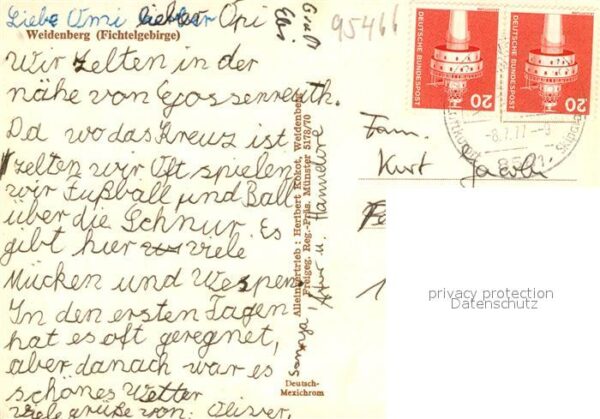 Liebe Omi lieber Opi
Weidenberg (Fichtelgebirge)
Wir zelten in der
nähe von Gossenreuth.
Da wo das Kreuz ist
zelten wir Oft spielen
wir Fußball und Ball
über die Schnur. Es
gibt hier viele
Mücken und Wespen.
In den ersten Tagen
hat es oft geregnet,
aber danach war es
schönes Wetter
viele grüße von: Oliver,
Gruß
Alleinvertrieb: Heribert Kokot, Weidenberg
Freigeg. Reg.-Präs. Münster 5178/70
Deutsch-
Mexichrom
95466
DEUTSCHE BUNDESPOST
20
DEUTSCHE BUNDESPOST
20
-8.7.77-9
Fam.
Kurt Jacobi
privacy protection
Datenschutz